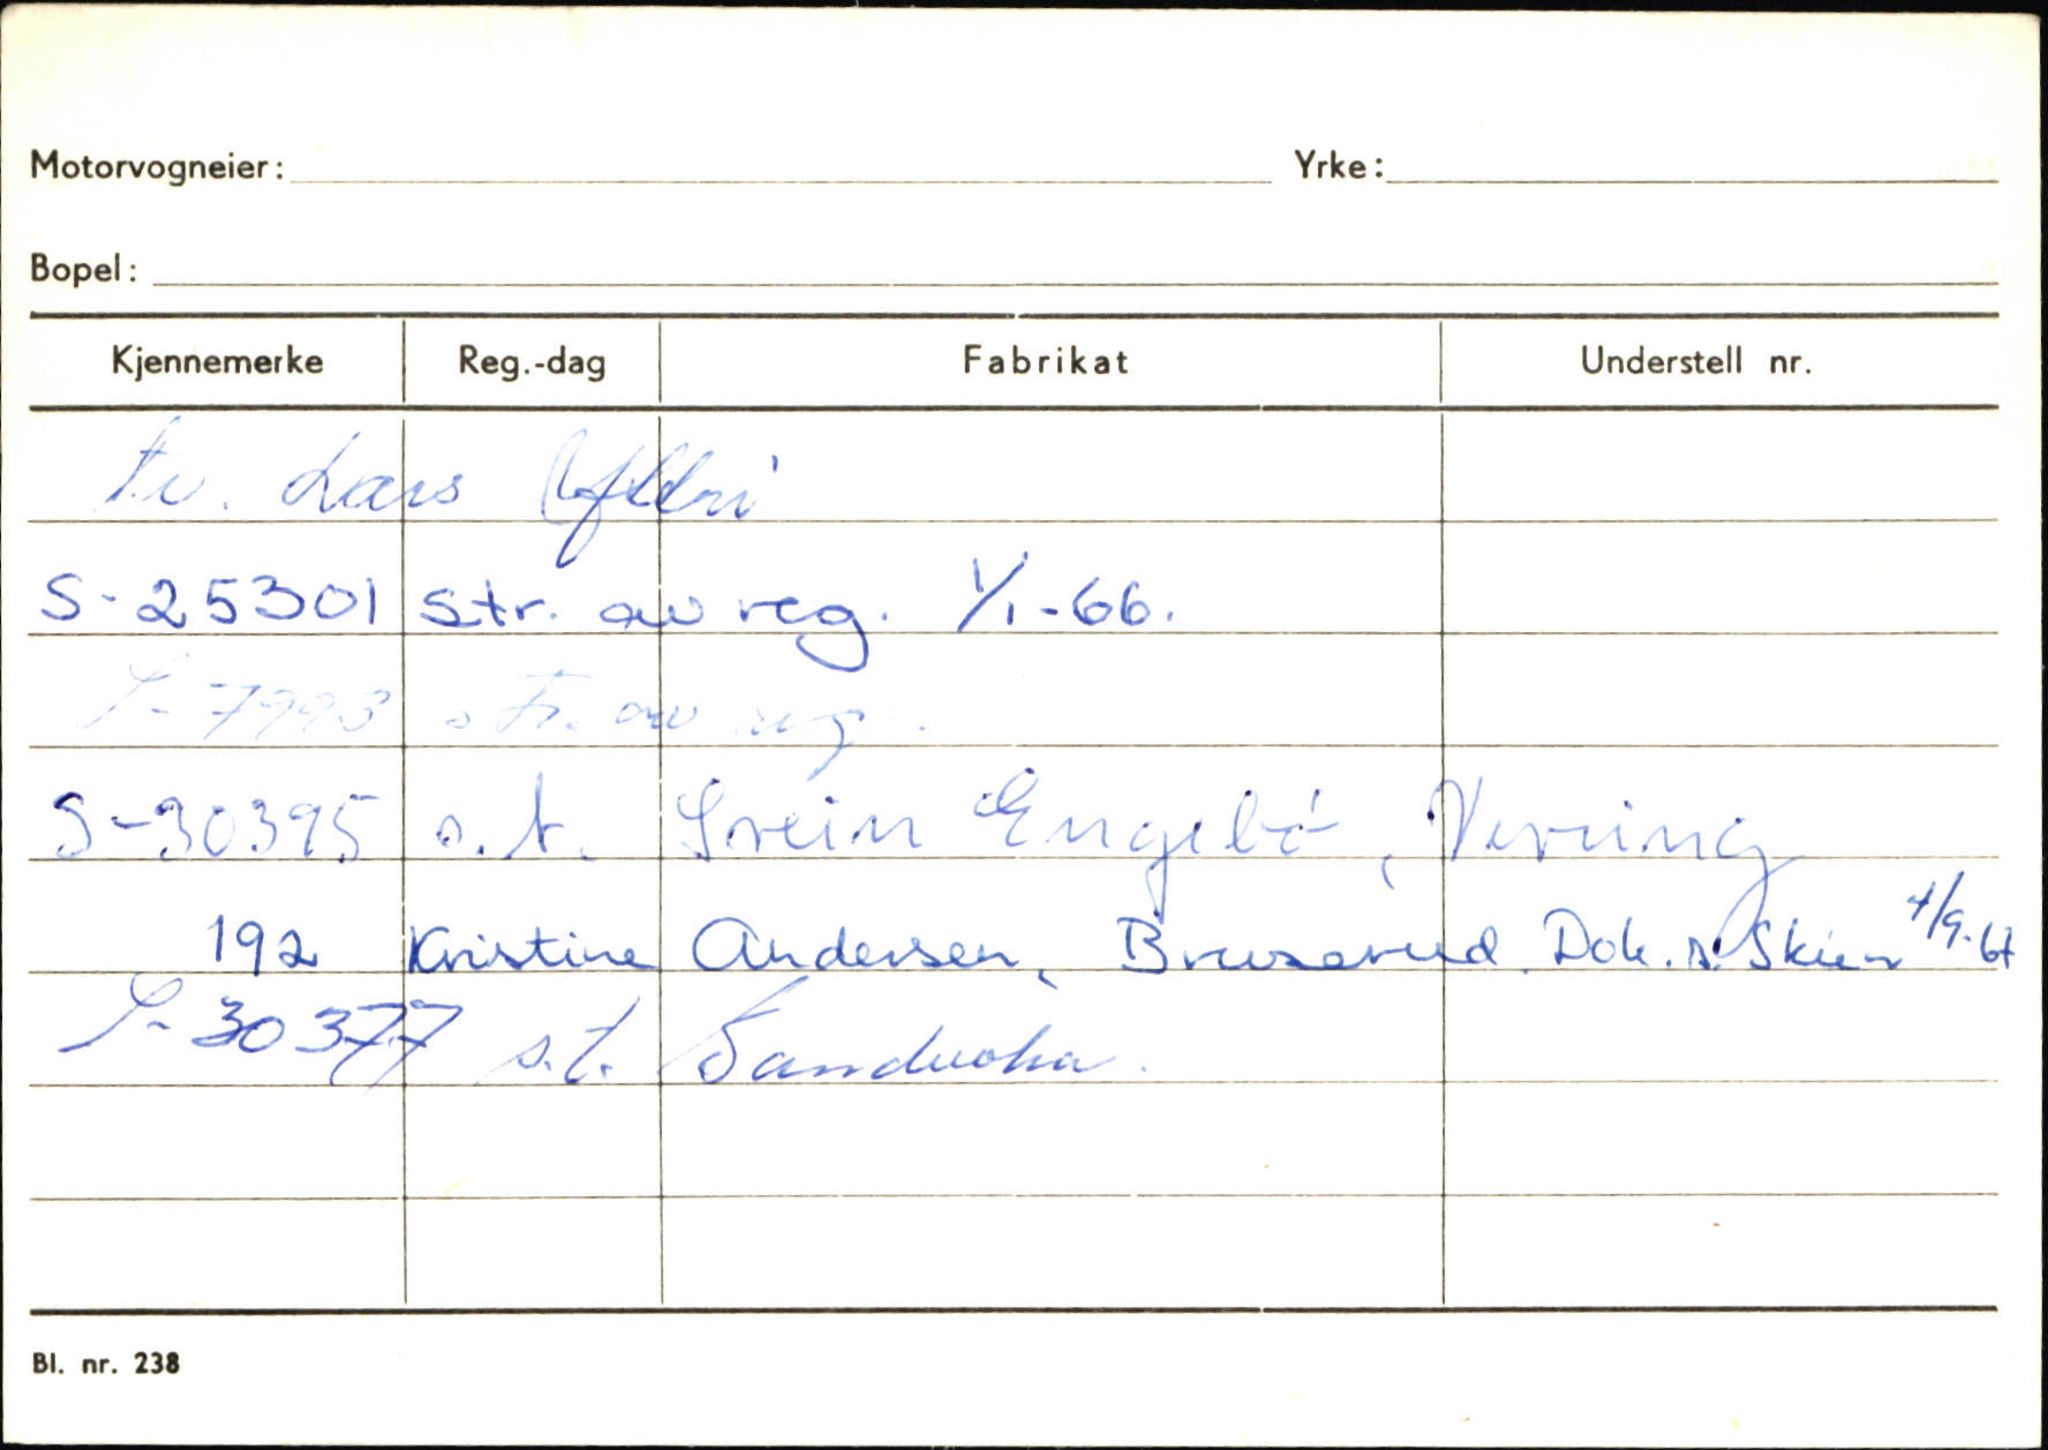 Motorvogneier: Yrke:
Bopel:
Kjennemerke Reg.-dag Fabrikat Understell nr.
Lars
S-25301 str. av reg. 1/1-66.
S-7993 str. av reg.
S-30395 s.t. Svein Engebö, Vevring
192 Kristine Andersen, Bruserud. Dok. s. Skien 4/9-67
S-30377 s.t.
Bl. nr. 238